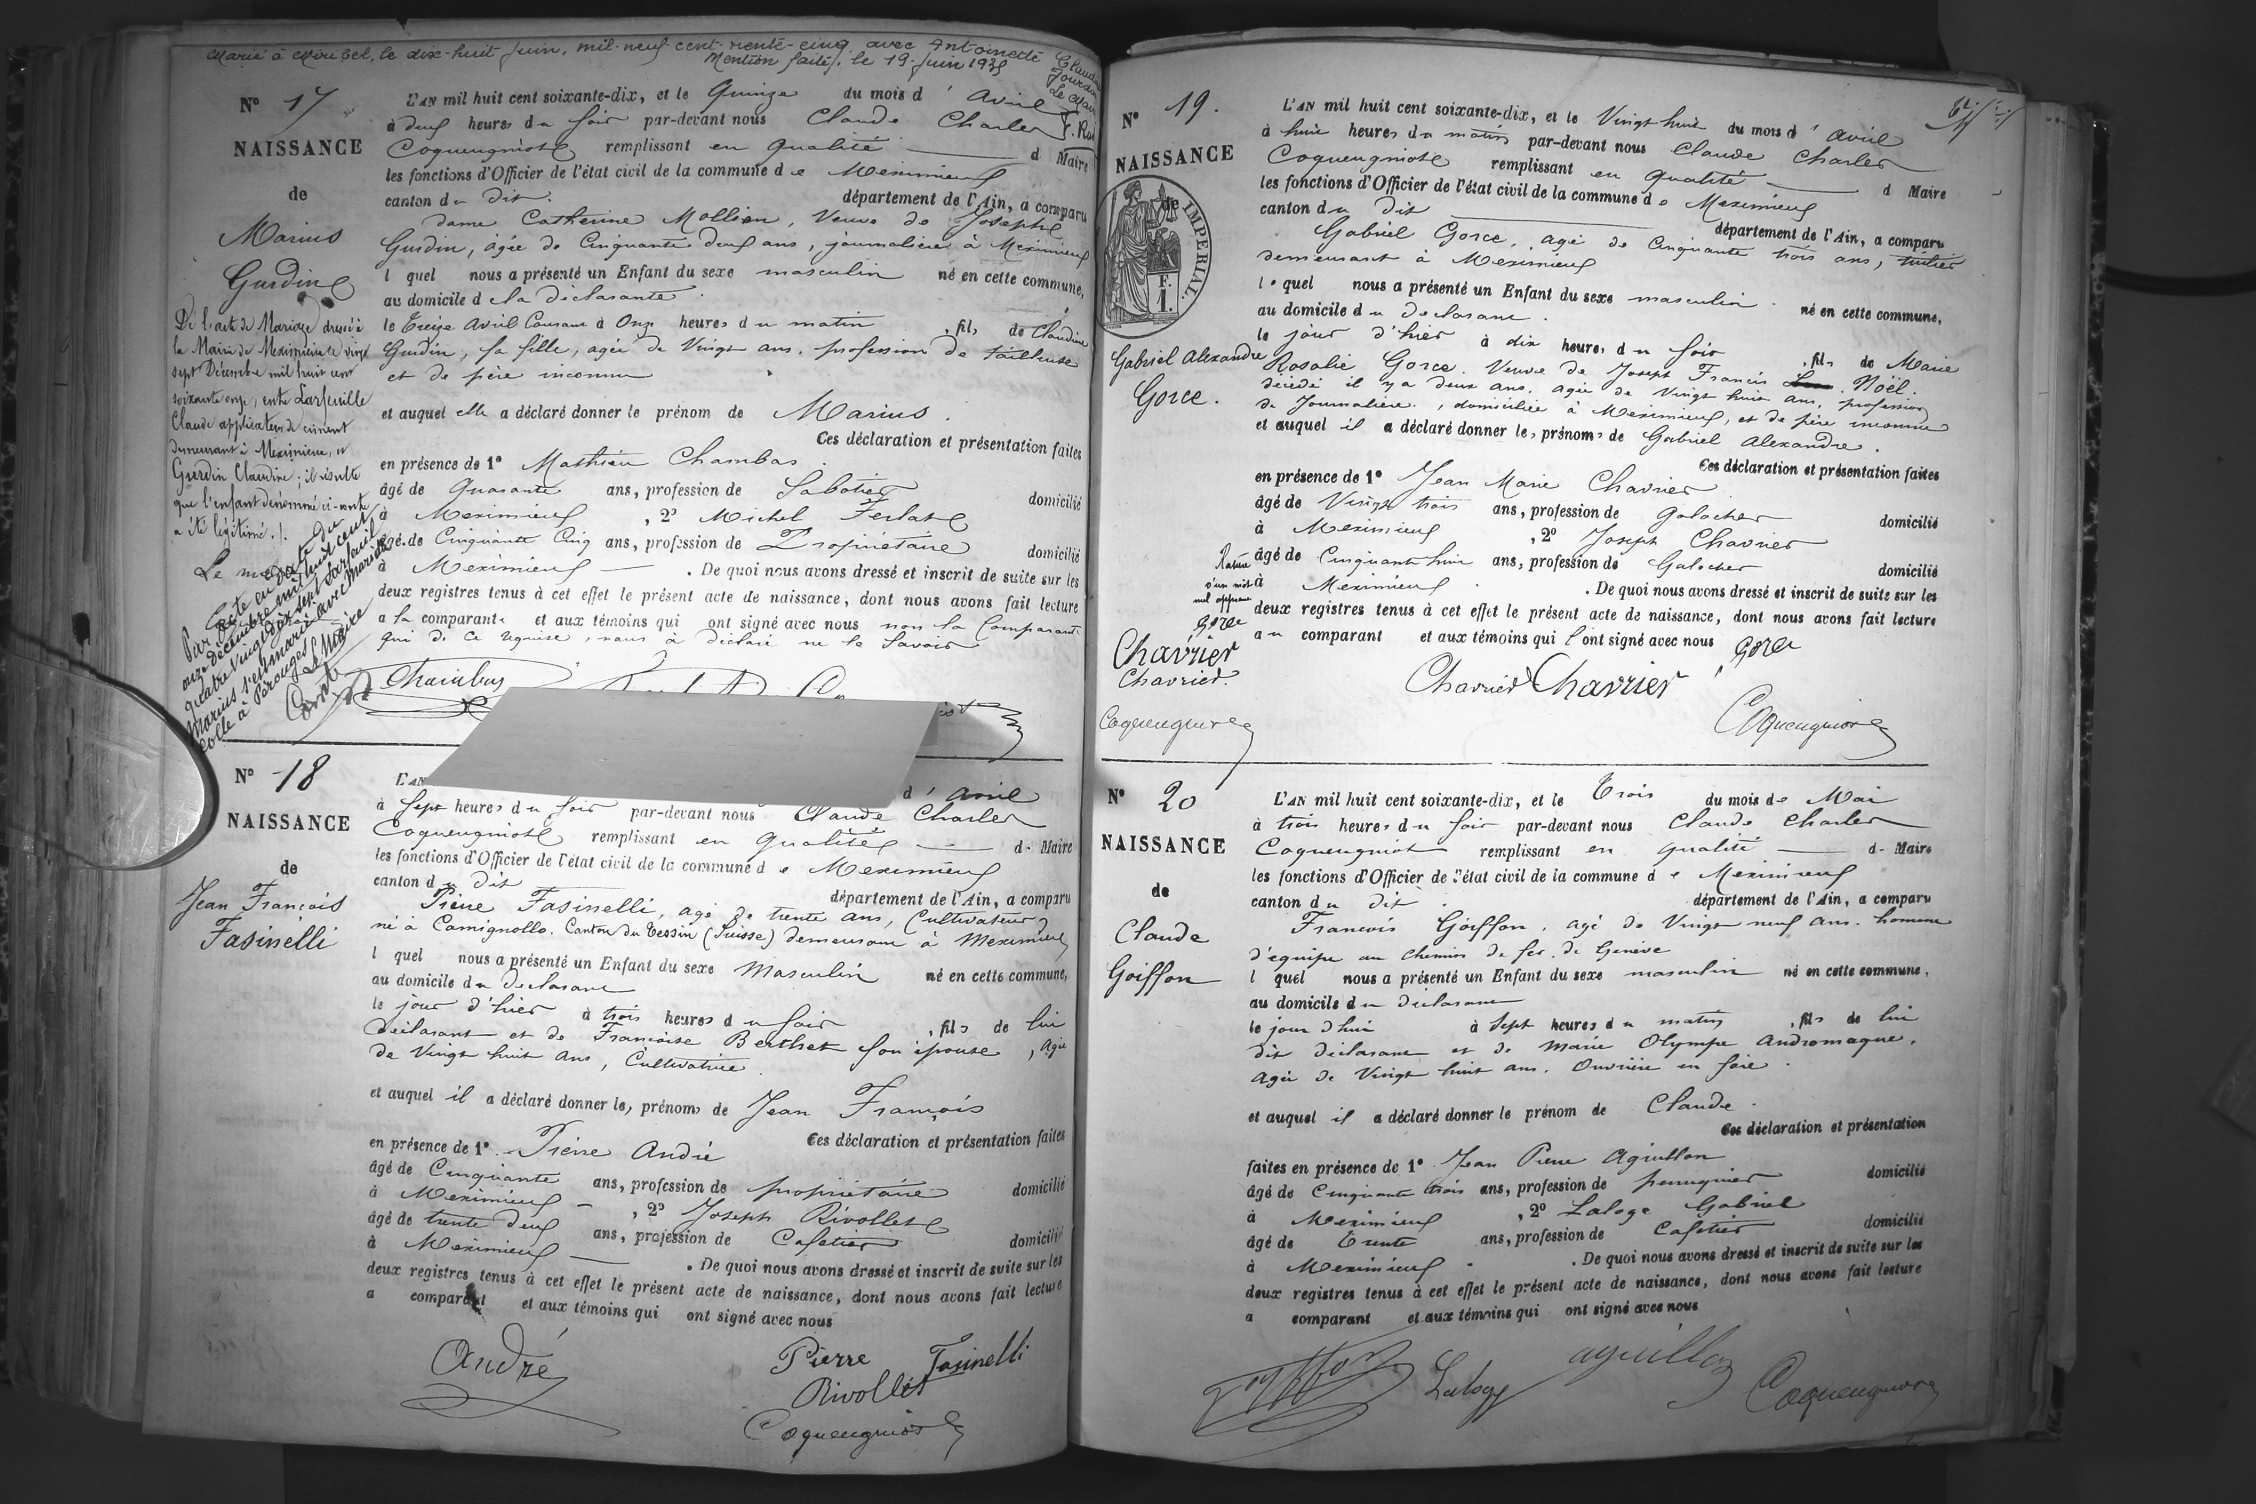 Marié à Miribel, le dix-huit Juin, mil-neuf-cent-trente-cinq avec Antoinette
Mention faite, le 19 Juin 1935
Claudine
Jourdan
Le Maire
N° 17
NAISSANCE
de
Marius
Gurdin
De l'acte de Mariage dressé à
la Mairie de Meximieux le vingt
sept Décembre mil huit cent
soixante onze, entre Larfeuille
Claude applicateur de ciment
demeurant à Meximieux, et
Gurdin Claudine; il résulte
que l'enfant dénommé ci-contre
a été légitimé.
Par acte en date du
onze Décembre mil huit cent
quatre vingt dix sept Larfeuille
Marius s'est marié avec Marie
colle à Pérouges Le Maire
L'AN mil huit cent soixante-dix, et le Quinze du mois d' Avril
à deux heures du soir par-devant nous Claude Charles
Coqueugniot remplissant en qualité d Maire
les fonctions d'Officier de l'état civil de la commune de Meximieux
canton du dit. département de l'Ain, a comparu
dame Catherine Mollion, Veuve de Joseph
Gurdin, agée de Cinquante deux ans, journalière à Meximieux
l quel nous a présenté un Enfant du sexe masculin né en cette commune,
au domicile de la déclarante.
le Treize Avril Courant à Onze heures du matin, fils de Claudine
Gurdin, sa fille, agée de Vingt ans, profession de tailleuse
et de père inconnu
et auquel elle a déclaré donner le prénom de Marius.
Ces déclaration et présentation faites
en présence de 1° Mathieu Chambas.
âgé de Quarante ans, profession de Sabotier domicilié
à Meximieux, 2° Michel Ferlat
âgé de Cinquante Cinq ans, profession de Propriétaire domicilié
à Meximieux. De quoi nous avons dressé et inscrit de suite sur les
deux registres tenus à cet effet le présent acte de naissance, dont nous avons fait lecture
a la comparante et aux témoins qui ont signé avec nous non la Comparante
qui de ce requise, nous a déclaré ne le Savoir
Chambas
N° 18
NAISSANCE
de
Jean François
Fasinelli
L'AN
d' avril
à Sept heures du soir par-devant nous Claude Charles
Coqueugniot remplissant en qualité d- Maire
les fonctions d'Officier de l'état civil de la commune de Meximieux
canton du dit département de l'Ain, a comparu
Pierre Fasinelli, agé de trente ans, Cultivateur,
né à Camignollo. Canton du Tessin (Suisse) demeurant à Meximieux
l quel nous a présenté un Enfant du sexe Masculin né en cette commune,
au domicile du déclarant
le jour d'hier à trois heures du soir, fils de lui
déclarant et de Françoise Berthet son épouse, agée
de Vingt huit ans, Cultivatrice.
et auquel il a déclaré donner les prénoms de Jean François
Ces déclaration et présentation faites
en présence de 1°. Pierre André
âgé de Cinquante ans, profession de propriétaire domicilié
à Meximieux, 2° Joseph Rivollet
âgé de trente deux ans, profession de Cafetier domicilié
à Meximieux. De quoi nous avons dressé et inscrit de suite sur les
deux registres tenus à cet effet le présent acte de naissance, dont nous avons fait lecture
a comparant et aux témoins qui ont signé avec nous
André
Pierre Fasinelli
Rivollet
Coqueugniot
N° 19.
NAISSANCE
de
IMPERIAL.
F.
1.
Gabriel Alexandre
Gorce.
Rature
d'un mot
nul approuvé
Gorce
Chavrier
Chavrier.
Coqueugniot
L'AN mil huit cent soixante-dix, et le Vingt huit du mois d' avril
à huit heures du matin par-devant nous Claude Charles
Coqueugniot remplissant en qualité d Maire
les fonctions d'Officier de l'état civil de la commune de Meximieux
canton du dit département de l'Ain, a comparu
Gabriel Gorce, agé de Cinquante trois ans, tuilier
demeurant à Meximieux
lequel nous a présenté un Enfant du sexe masculin. né en cette commune,
au domicile du declarant.
le jour d'hier à dix heures du soir, fils de Marie
Rosalie Gorce. Veuve de Joseph Francis Noël.
décédé il y a deux ans, agée de Vingt huit ans, profession
de Journalière, domiciliée à Meximieux, et de père inconnu
et auquel il a déclaré donner les prénoms de Gabriel Alexandre.
Ces déclaration et présentation faites
en présence de 1° Jean Marie Chavrier
âgé de Vingt trois ans, profession de Galocher domicilié
à Meximieux, 2° Joseph Chavrier
âgé de Cinquante huit ans, profession de Galocher domicilié
à Meximieux. De quoi nous avons dressé et inscrit de suite sur les
deux registres tenus à cet effet le présent acte de naissance, dont nous avons fait lecture
au comparant et aux témoins qui l'ont signé avec nous Gorce
Chavrier Chavrier
Coqueugniot
N° 20
NAISSANCE
de
Claude
Goiffon
L'AN mil huit cent soixante-dix, et le Trois du mois de Mai
à trois heures du soir par-devant nous Claude Charles
Coqueugniot remplissant en qualité d- Maire
les fonctions d'Officier de l'état civil de la commune de Meximieux
canton du dit. département de l'Ain, a comparu
François Goiffon, agé de Vingt neuf ans. homme
d'équipe au chemin de fer de Genève
l quel nous a présenté un Enfant du sexe masculin né en cette commune,
au domicile du déclarant
le jour d'hui à Sept heures du matin, fils de lui
dit déclarant et de Marie Olympe Andromaque,
agée de Vingt huit ans. Ouvrière en soie.
et auquel il a déclaré donner le prénom de Claude.
Ces déclaration et présentation
faites en présence de 1° Jean Pierre Aguillon
âgé de Cinquante trois ans, profession de perruquier domicilié
à Meximieux, 2° Laloge Gabriel
âgé de Trente ans, profession de Cafetier domicilié
à Meximieux. De quoi nous avons dressé et inscrit de suite sur les
deux registres tenus à cet effet le présent acte de naissance, dont nous avons fait lecture
a comparant et aux témoins qui ont signé avec nous
Goiffon Laloge aguillon Coqueugniot